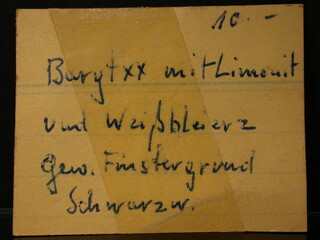 10.-
Barytxx mit Limonit
und Weißbleierz
Gew. Finstergrund
Schwarzw.